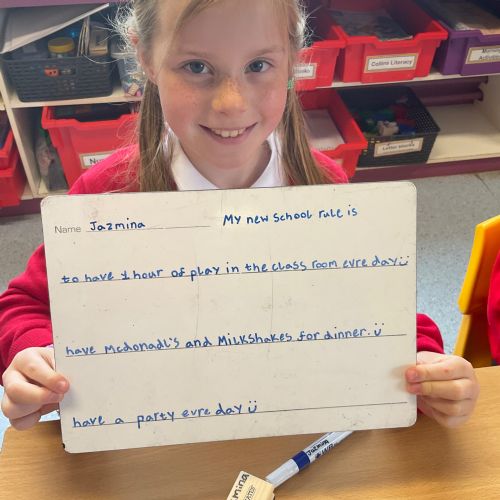 Collins Literacy
Name Jazmina My new school rule is
to have 1 hour of play in the class room evre day
have Mcdonadl's and Milkshakes for dinner.
have a party evre day
Jazmina